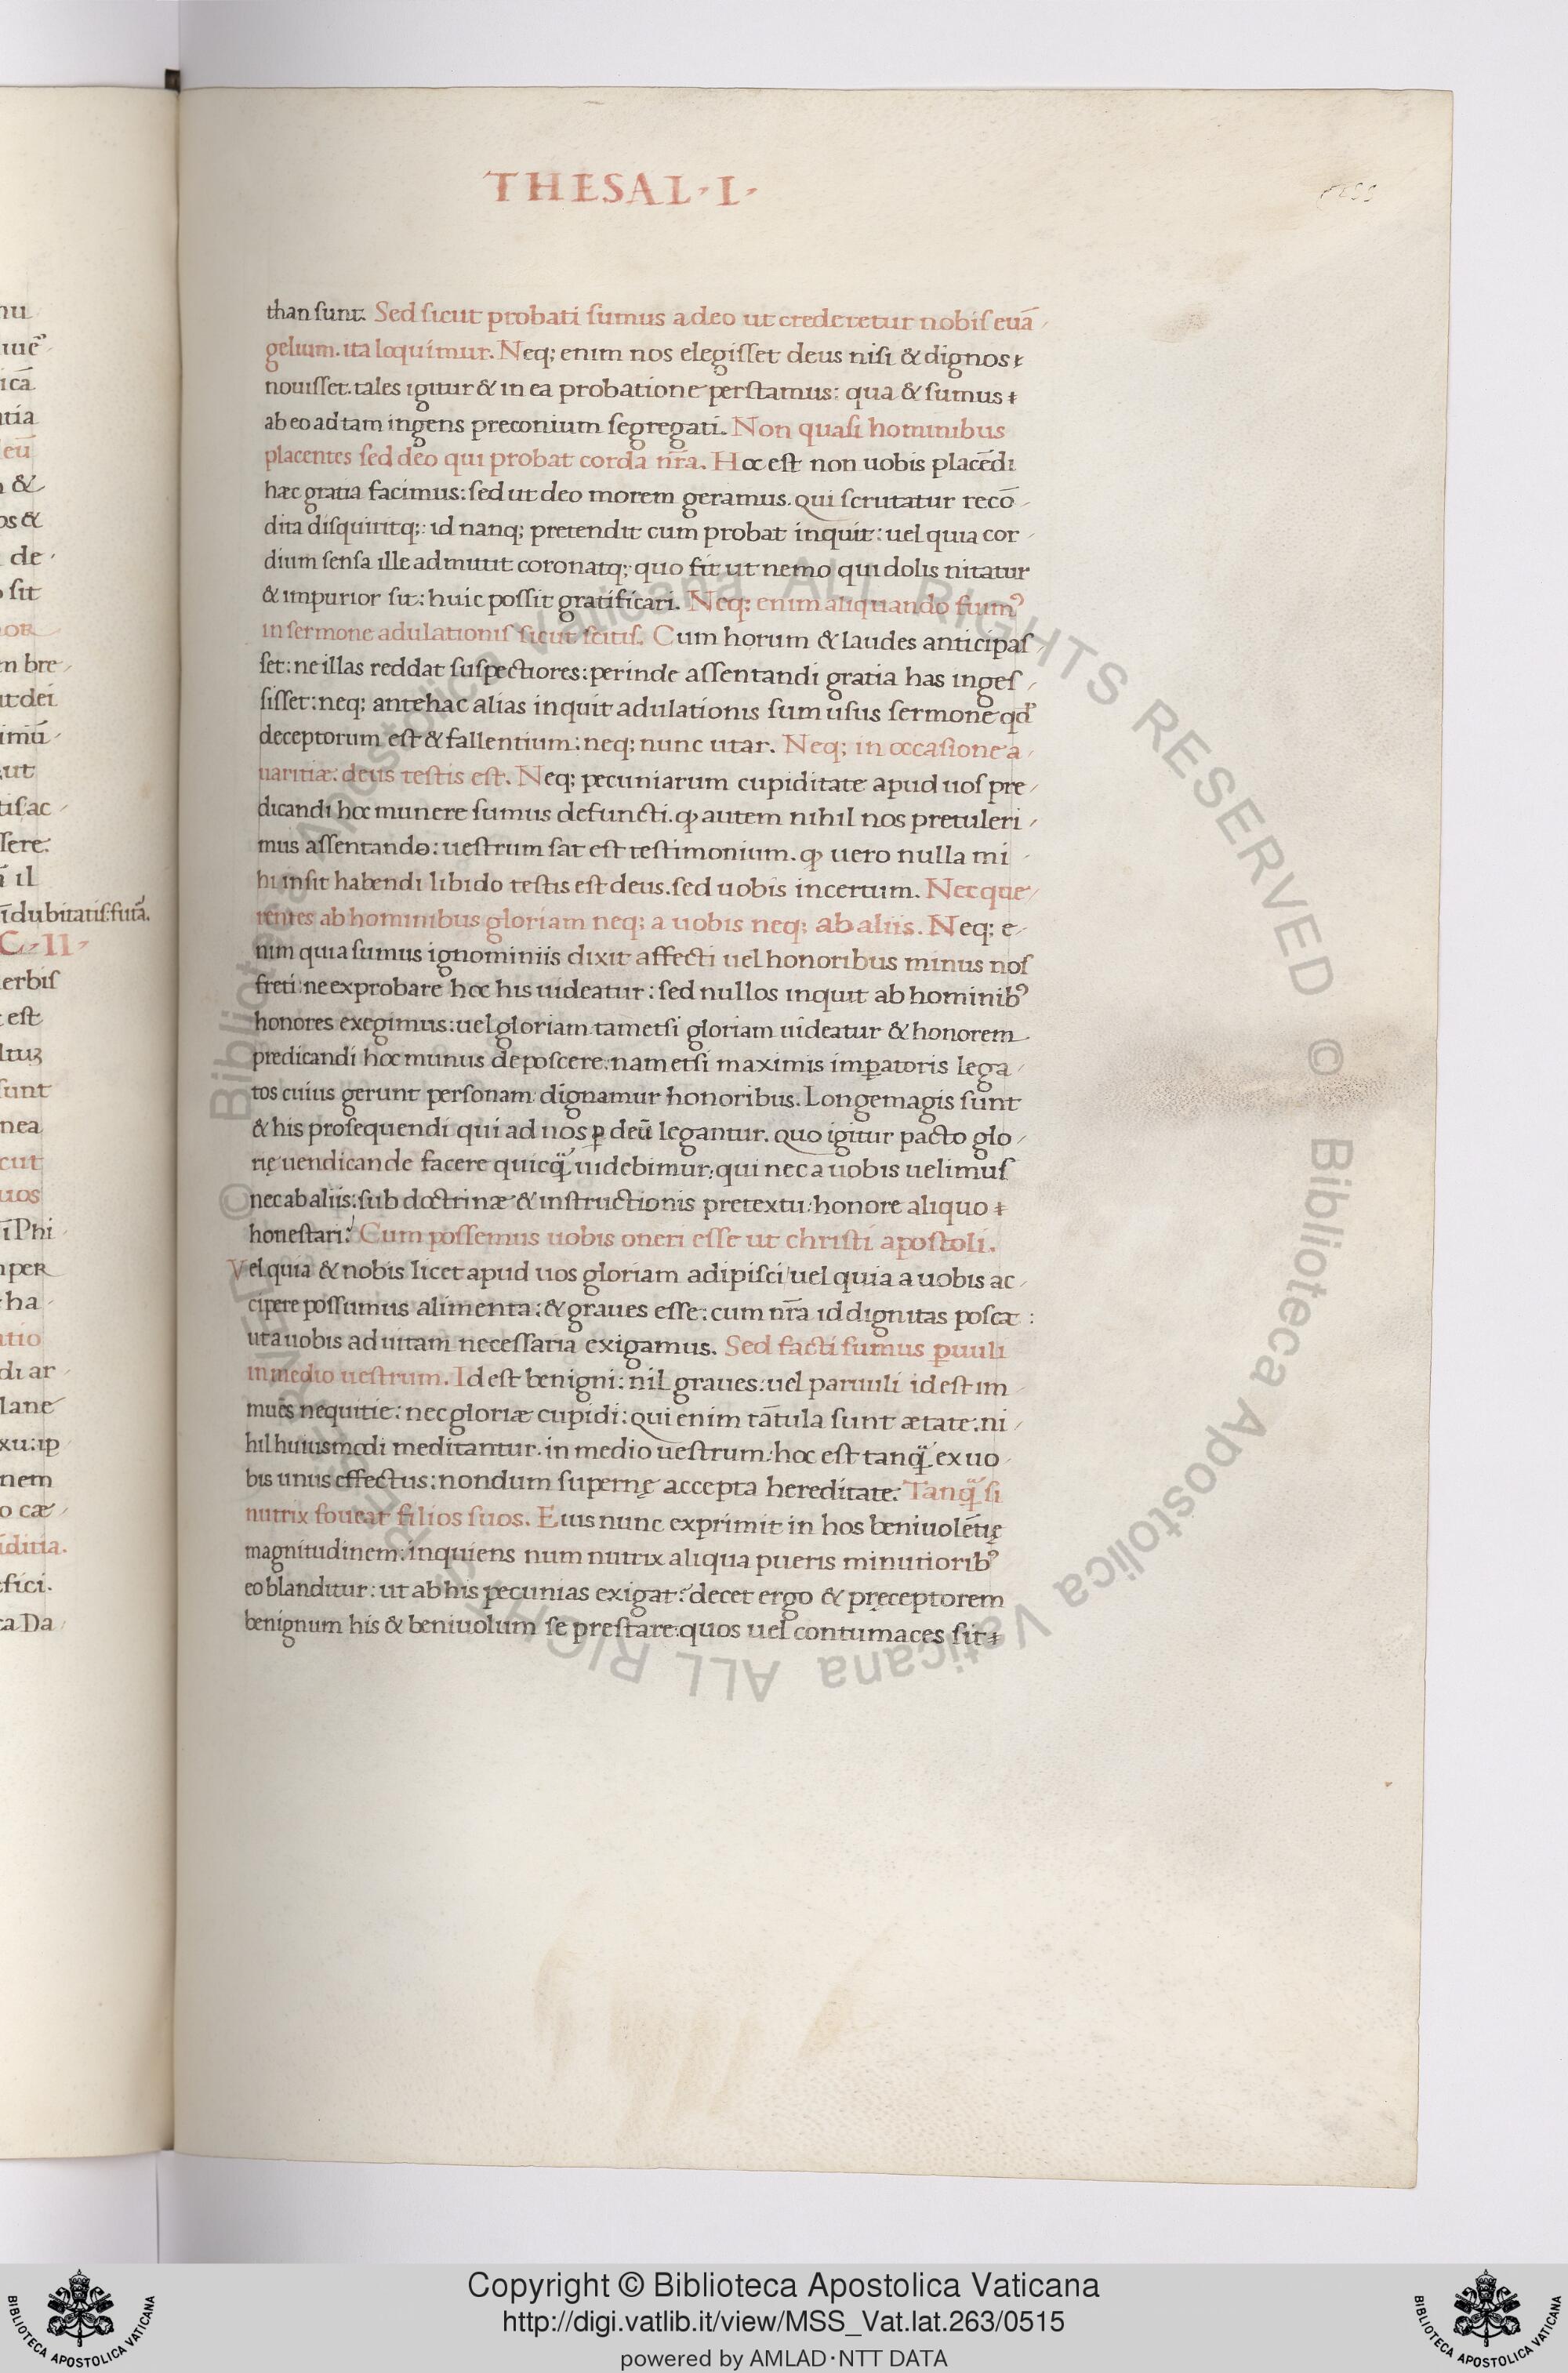 THESAL · I ·
than sunt. Sed sicut probati sumus a deo ut crederetur nobis euā
gelium. ita loquimur. Neq; enim nos elegisset deus nisi & dignos
nouisset. tales igitur & in ea probatione perstamus: qua & sumus
ab eo ad tam ingens preconium segregati. Non quasi hominibus
placentes sed deo qui probat corda nr̄a. Hoc est non uobis placēdi
hæc gratia facimus: sed ut deo morem geramus. qui scrutatur recō
dita disquiritq;: id nanq; pretendit cum probat inquit: uel quia cor
dium sensa ille admittit coronatq;: quo fit ut nemo qui dolis nitatur
& impurior sit: huic possit gratificari. Neq; enim aliquando fuim⁹
in sermone adulationis sicut scitis. Cum horum & laudes anticipas
set: ne illas reddat suspectiores: perinde assentandi gratia has inges
sisset: neq; antehac alias inquit adulationis sum usus sermone qd̛
deceptorum est & fallentium: neq; nunc utar. Neq; in occasione a
uaritiæ: deus testis est. Neq; pecuniarum cupiditate apud uos pre
dicandi hoc munere sumus defuncti. ꝙ autem nihil nos pretuleri
mus assentando: uestrum sat est testimonium. ꝙ uero nulla mi
hi insit habendi libido testis est deus. sed uobis incertum. Nec que
rentes ab hominibus gloriam neq; a uobis neq; ab aliis. Neq; e
nim quia sumus ignominiis dixit affecti uel honoribus minus nos
freti: ne exprobare hoc his uideatur: sed nullos inquit ab hominib⁹
honores exegimus: uel gloriam tametsi gloriam uideatur & honorem
predicandi hoc munus deposcere: nam etsi maximis imꝑatoris lega
tos cuius gerunt personam dignamur honoribus. Longe magis sunt
& his prosequendi qui ad nos ꝑ deū legantur. quo igitur pacto glo
rię uendicande facere quicq̃ uidebimur: qui nec a uobis uelimus
nec ab aliis: sub doctrinæ & instructionis pretextu: honore aliquo
honestari? Cum possemus uobis oneri esse ut christi apostoli.
Vel quia & nobis licet apud uos gloriam adipisci uel quia a uobis ac
cipere possumus alimenta: & graues esse: cum nr̄a id dignitas poscat:
ut a uobis ad uitam necessaria exigamus. Sed facti sumus ꝑuuli
in medio uestrum. Id est benigni: nil graues: uel paruuli id est im
mūes nequitie: nec gloriæ cupidi: qui enim tātula sunt ætate: ni
hil huiusmodi meditantur. in medio uestrum: hoc est tanq̃ ex uo
bis unus effectus: nondum supernę accepta hereditate: Tanq̃ si
nutrix foueat filios suos. Eius nunc exprimit in hos beniuolētię
magnitudinem: inquiens num nutrix aliqua pueris minutiorib⁹
eo blanditur: ut ab his pecunias exigat? decet ergo & pręceptorem
benignum his & beniuolum se prestare: quos uel contumaces sit
nu
icā
atia
eū
&
os &
de
sit
m bre
ut dei
imū
ut
tis ac
ssere:
il
īdubitatis: futā.
C · II ·
erbis
est
sunt
nea
cut
uos
ī Phi
per
ha
atio
di ar
lane
xu: ip
nem
o cæ
fici.
ta Da
Copyright © Biblioteca Apostolica Vaticana
http://digi.vatlib.it/view/MSS_Vat.lat.263/0515
powered by AMLAD · NTT DATA
BIBLIOTECA APOSTOLICA VATICANA
BIBLIOTECA APOSTOLICA VATICANA
© Biblioteca Apostolica Vaticana ALL RIGHTS RESERVED © Biblioteca Apostolica Vaticana ALL RIGHTS RESERVED